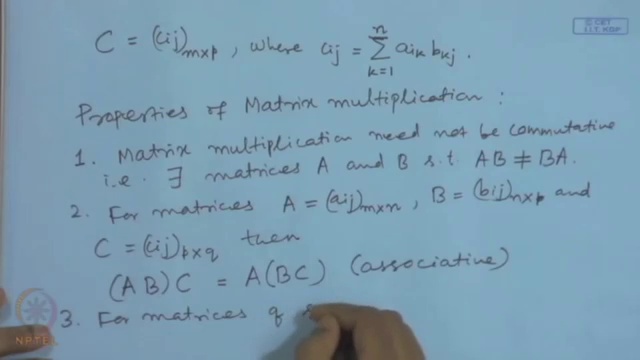 C = (cij)m×p, where cij = n∑k=1 aik bkj.
© CET
I.I.T. KGP
Properties of Matrix multiplication :
1. Matrix multiplication need not be commutative
i.e. ∃ matrices A and B s.t. AB ≠ BA.
2. For matrices A = (aij)m×n, B = (bij)n×p and
C = (cij)p×q then
(AB)C = A(BC) (associative)
3. For matrices of
NPTEL